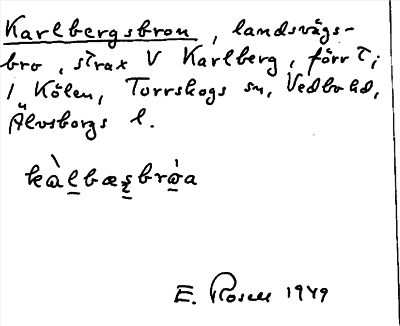 Karlbergsbron, landsvägs-
bro, strax V Karlberg, förr T;
1 Kölen, Torrskogs sn, Vedbo hd,
Älvsborgs l.
kàlbæsbròa
E. Rosell 1949